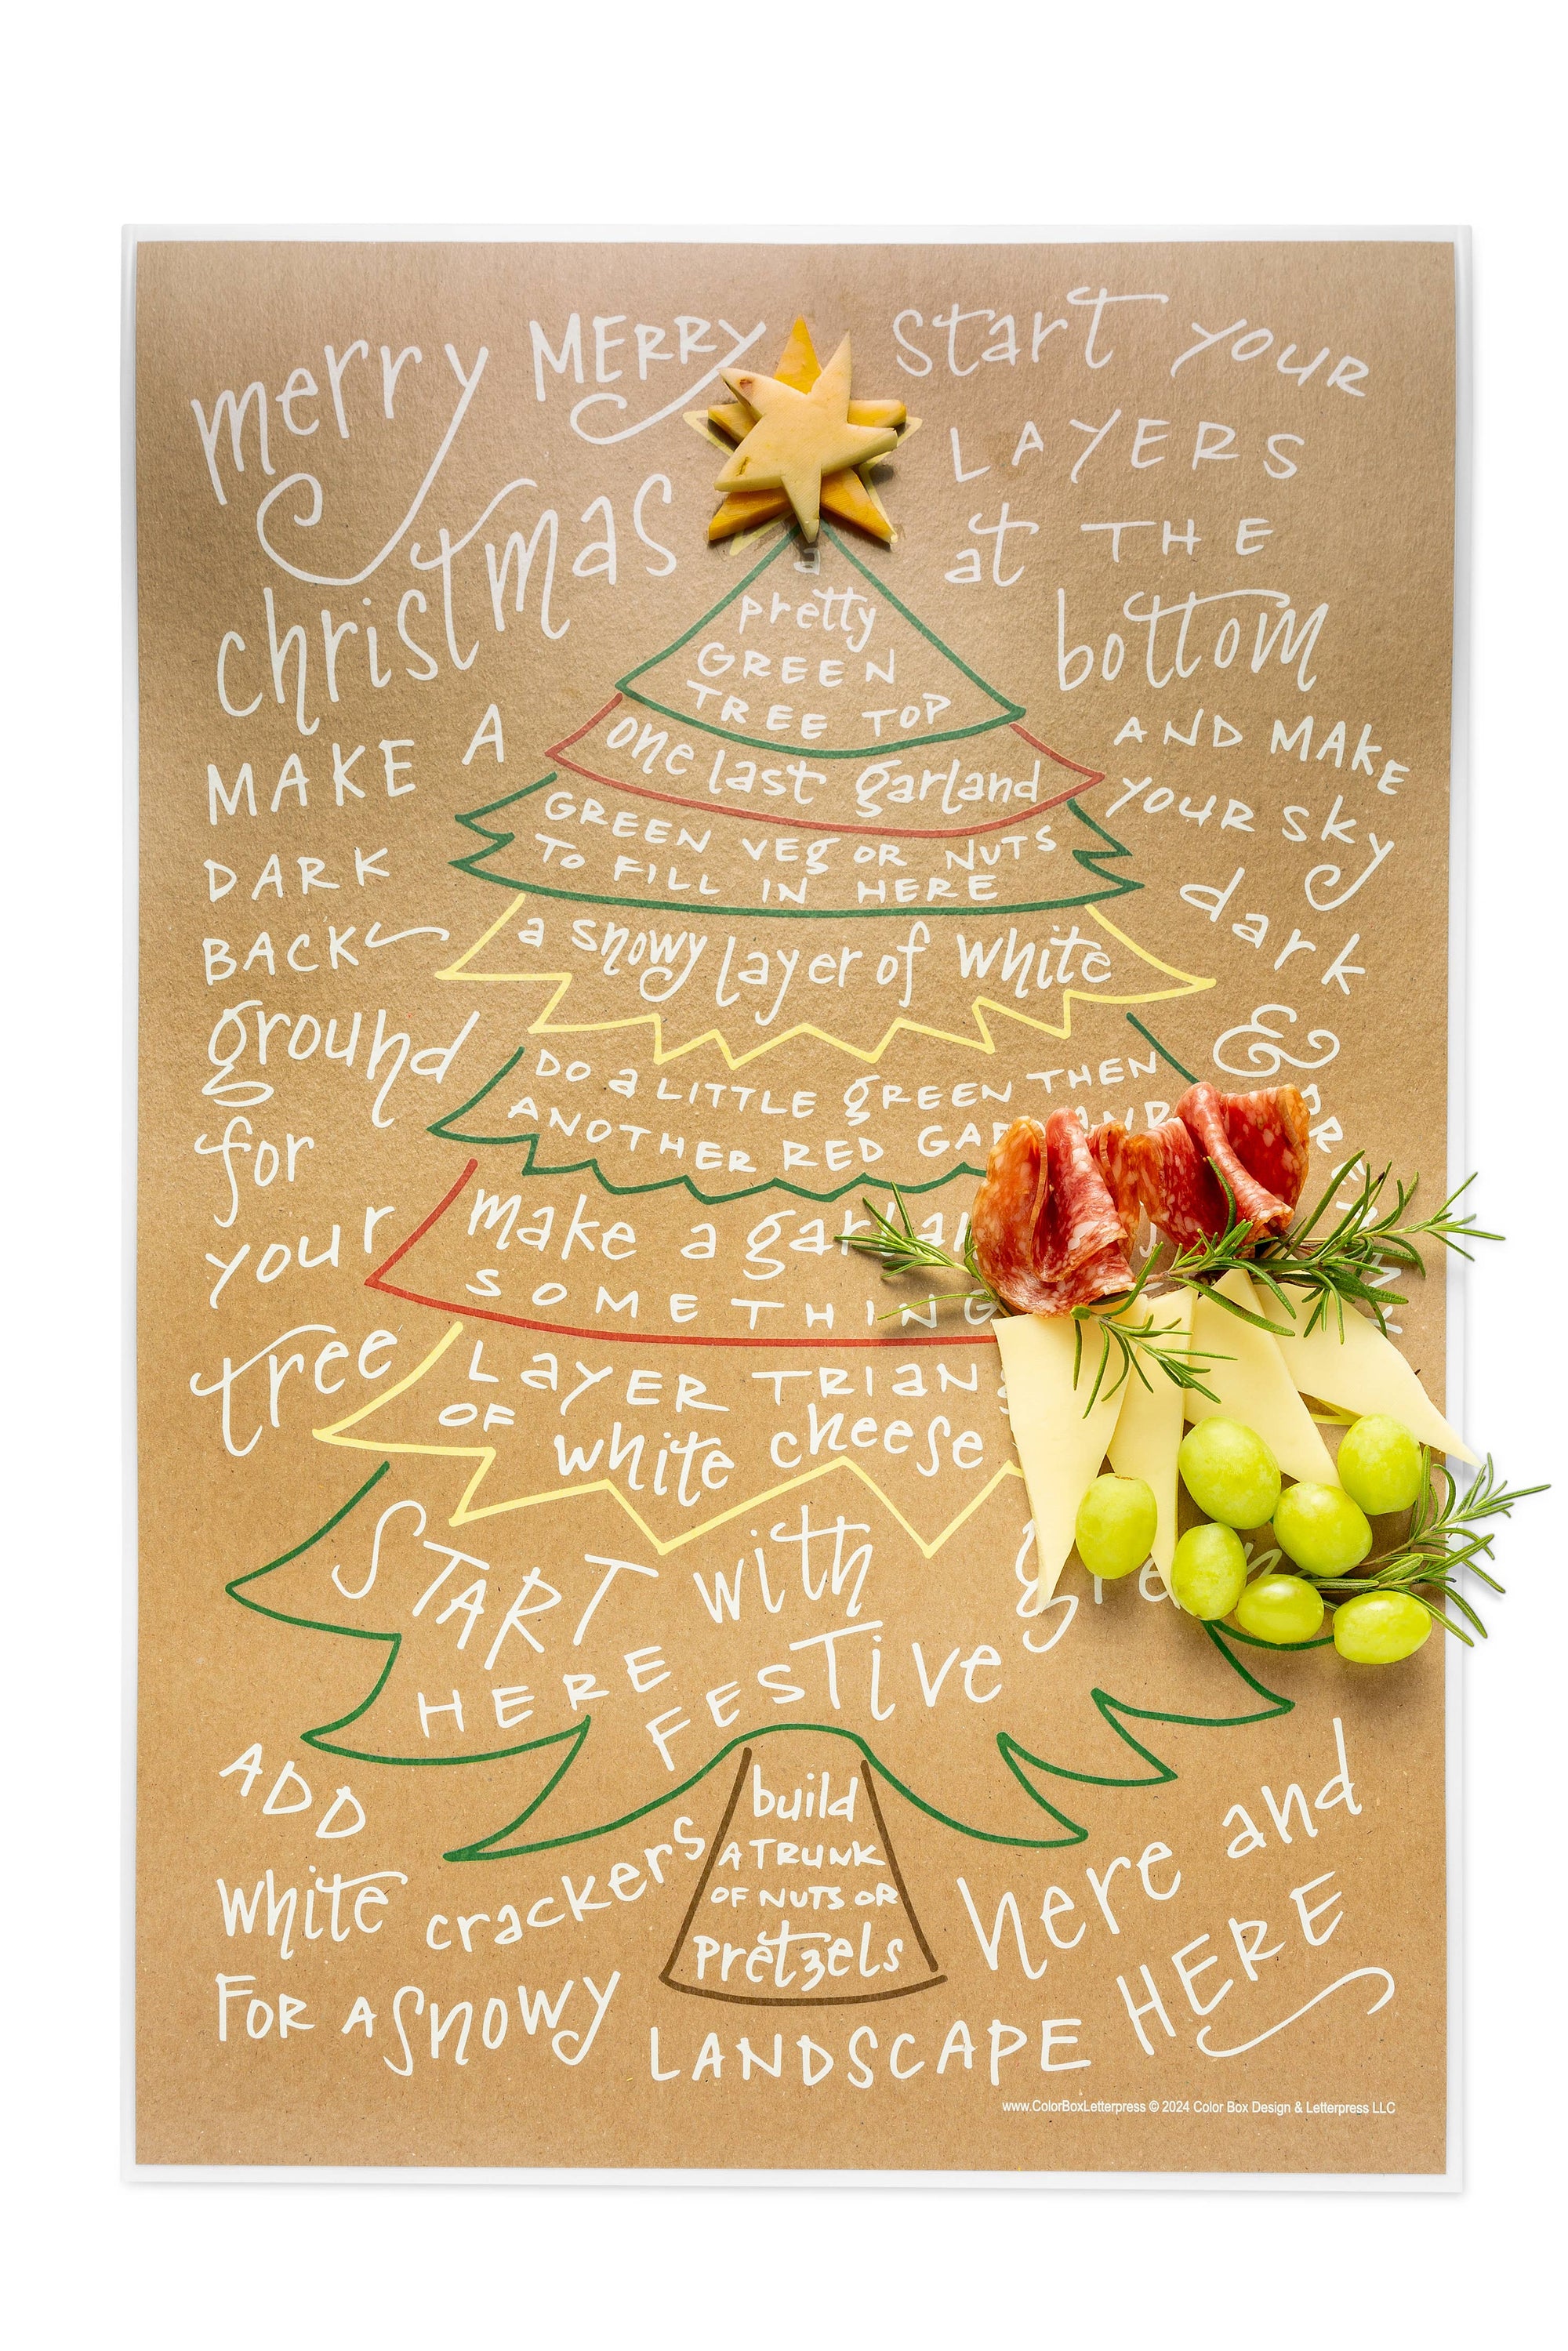 merry MERRY
christmas
MAKE A
DARK
BACK
ground
for
your
tree
start YOUR
LAYERS
at THE
bottom
AND MAKE
YOUR SKY
dark
&
a
pretty
GREEN
TREE TOP
one last garland
GREEN VEG OR NUTS
TO FILL IN HERE
a snowy layer of white
DO a LITTLE GREEN THEN
ANOTHER RED
make a
SOMETHING
LAYER
OF white cheese
START with
HERE FESTIVE
build
A TRUNK
OF NUTS OR
pretzels
ADD
white crackers
FOR A SNOWY
LANDSCAPE
here and
HERE
www.ColorBoxLetterpress © 2024 Color Box Design & Letterpress LLC